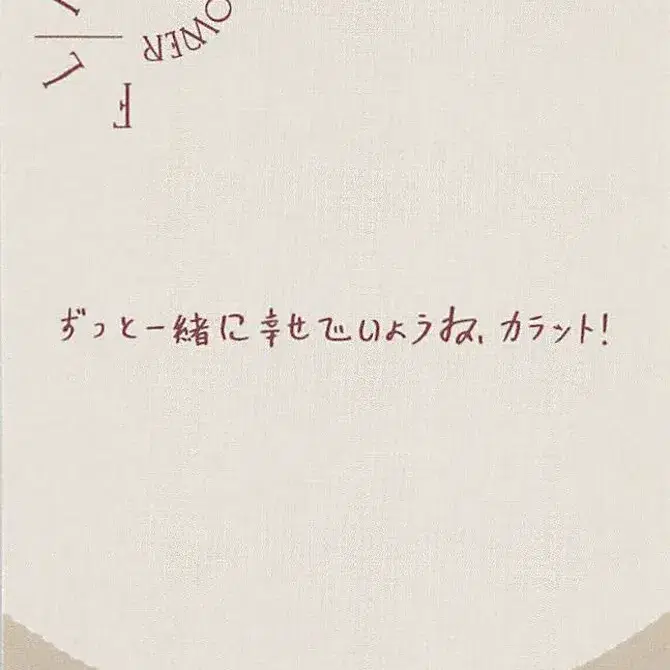 FLOWER
ずっと一緒に幸せでいようね、カラット!